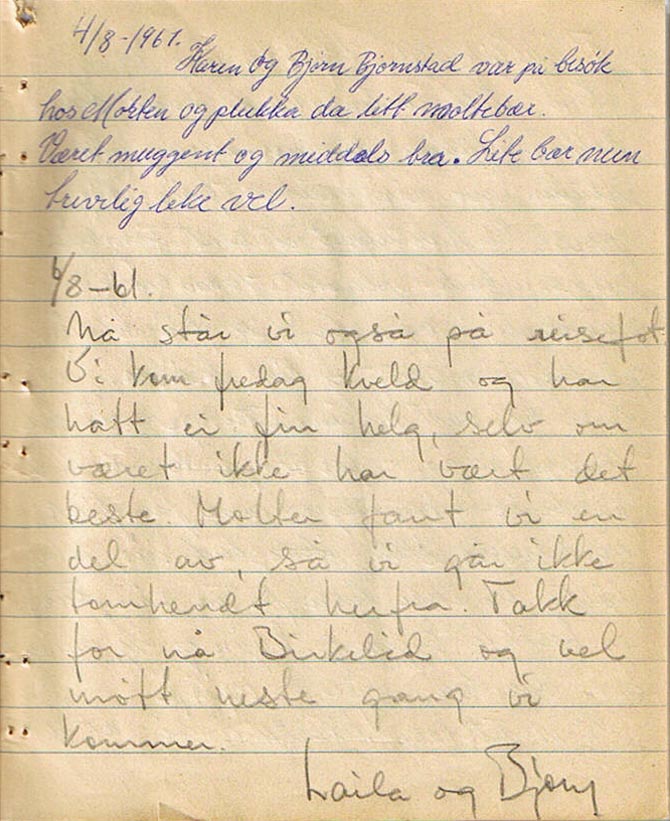 4/8-1961.
Karen og Bjørn Bjørnstad var på besøk
hos Morten og plukka da litt moltebær.
Været muggent og middels bra. Lite bær men
trivelig like vel.
6/8-61.
Nå står vi også på reisefot.
Vi kom fredag kveld og har
hatt ei fin helg, selv om
været ikke har vært det
beste. Molter fant vi en
del av, så vi går ikke
tomhendt herfra. Takk
for nå Birkelid og vel
møtt neste gang vi
kommer.
Laila og Bjørn